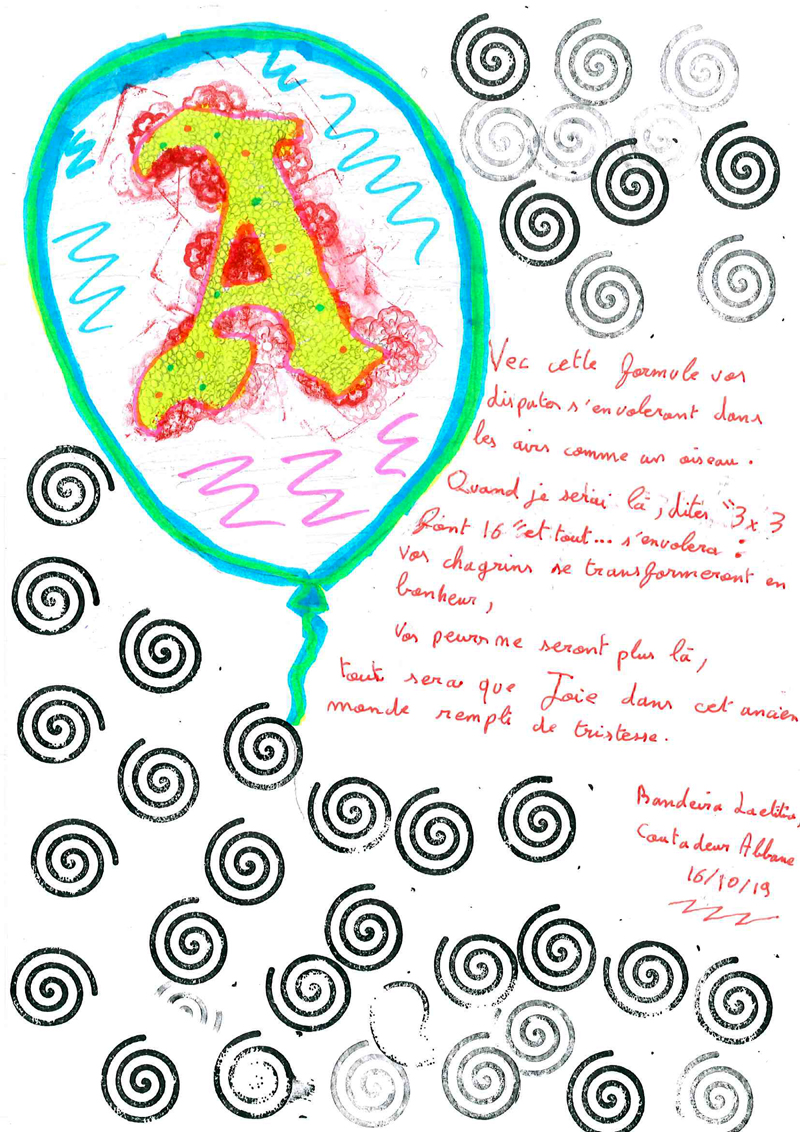 A
Vec cette formule vos
disputes s'envoleront dans
les airs comme un oiseau.
Quand je serai là, dites "3x3
font 16" et tout... s'envolera :
vos chagrins se transformeront en
bonheur,
vos peurs ne seront plus là,
tout sera que Joie dans cet ancien
monde rempli de tristesse.
Bandeira Laetitia,
Contadeur Abbane
16/10/19